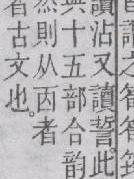 之
讀沾又讀誓。此
與十五部合韵
然則从㐁者
者古文也。